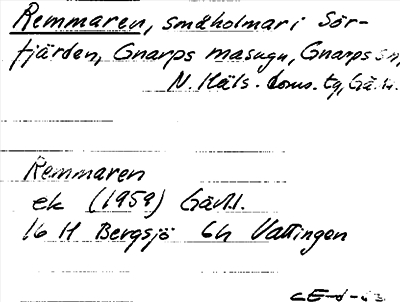 Remmaren, småholmar i Sör-
fjärden, Gnarps masugn, Gnarps sn,
N. Häls. doms. tg, Gä. l.
Remmaren
ek (1959) Gävl.
16 H Bergsjö 6h Vattingen